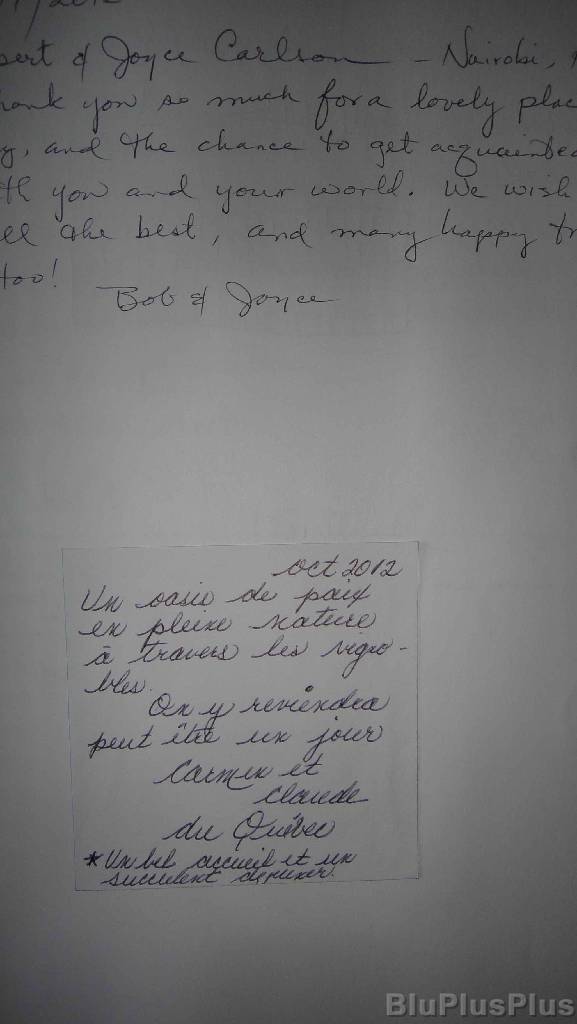 /2012
bert & Joyce Carlson – Nairobi,
hank you so much for a lovely plac
y, and the chance to get acquainted
th you and your world. We wish
ll the best, and many happy tr
too!
Bob & Joyce
oct 2012
Un oasis de paix
en pleine nature
à travers les vigno-
bles.
On y reviendra
peut être un jour
Carmen et
Claude
du Québec
* Un bel accueil et un
succulent déjeuner.
BluPlusPlus